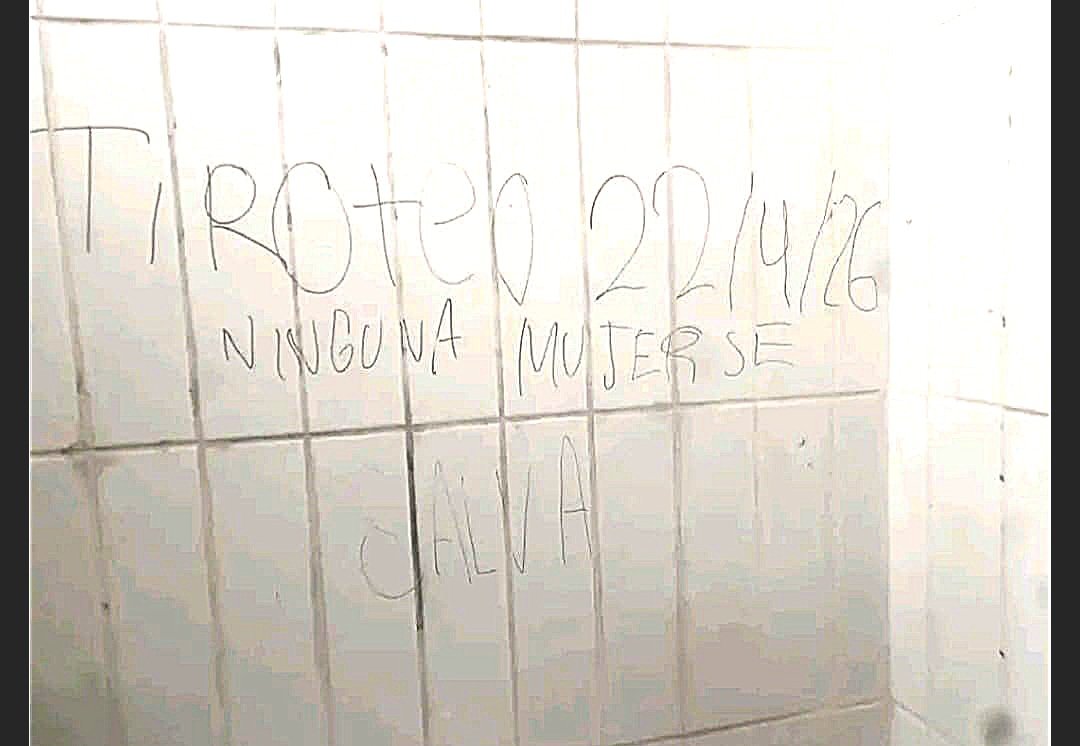 TiROteo 22/4/26
NINGUNA MUJER SE
SALVA